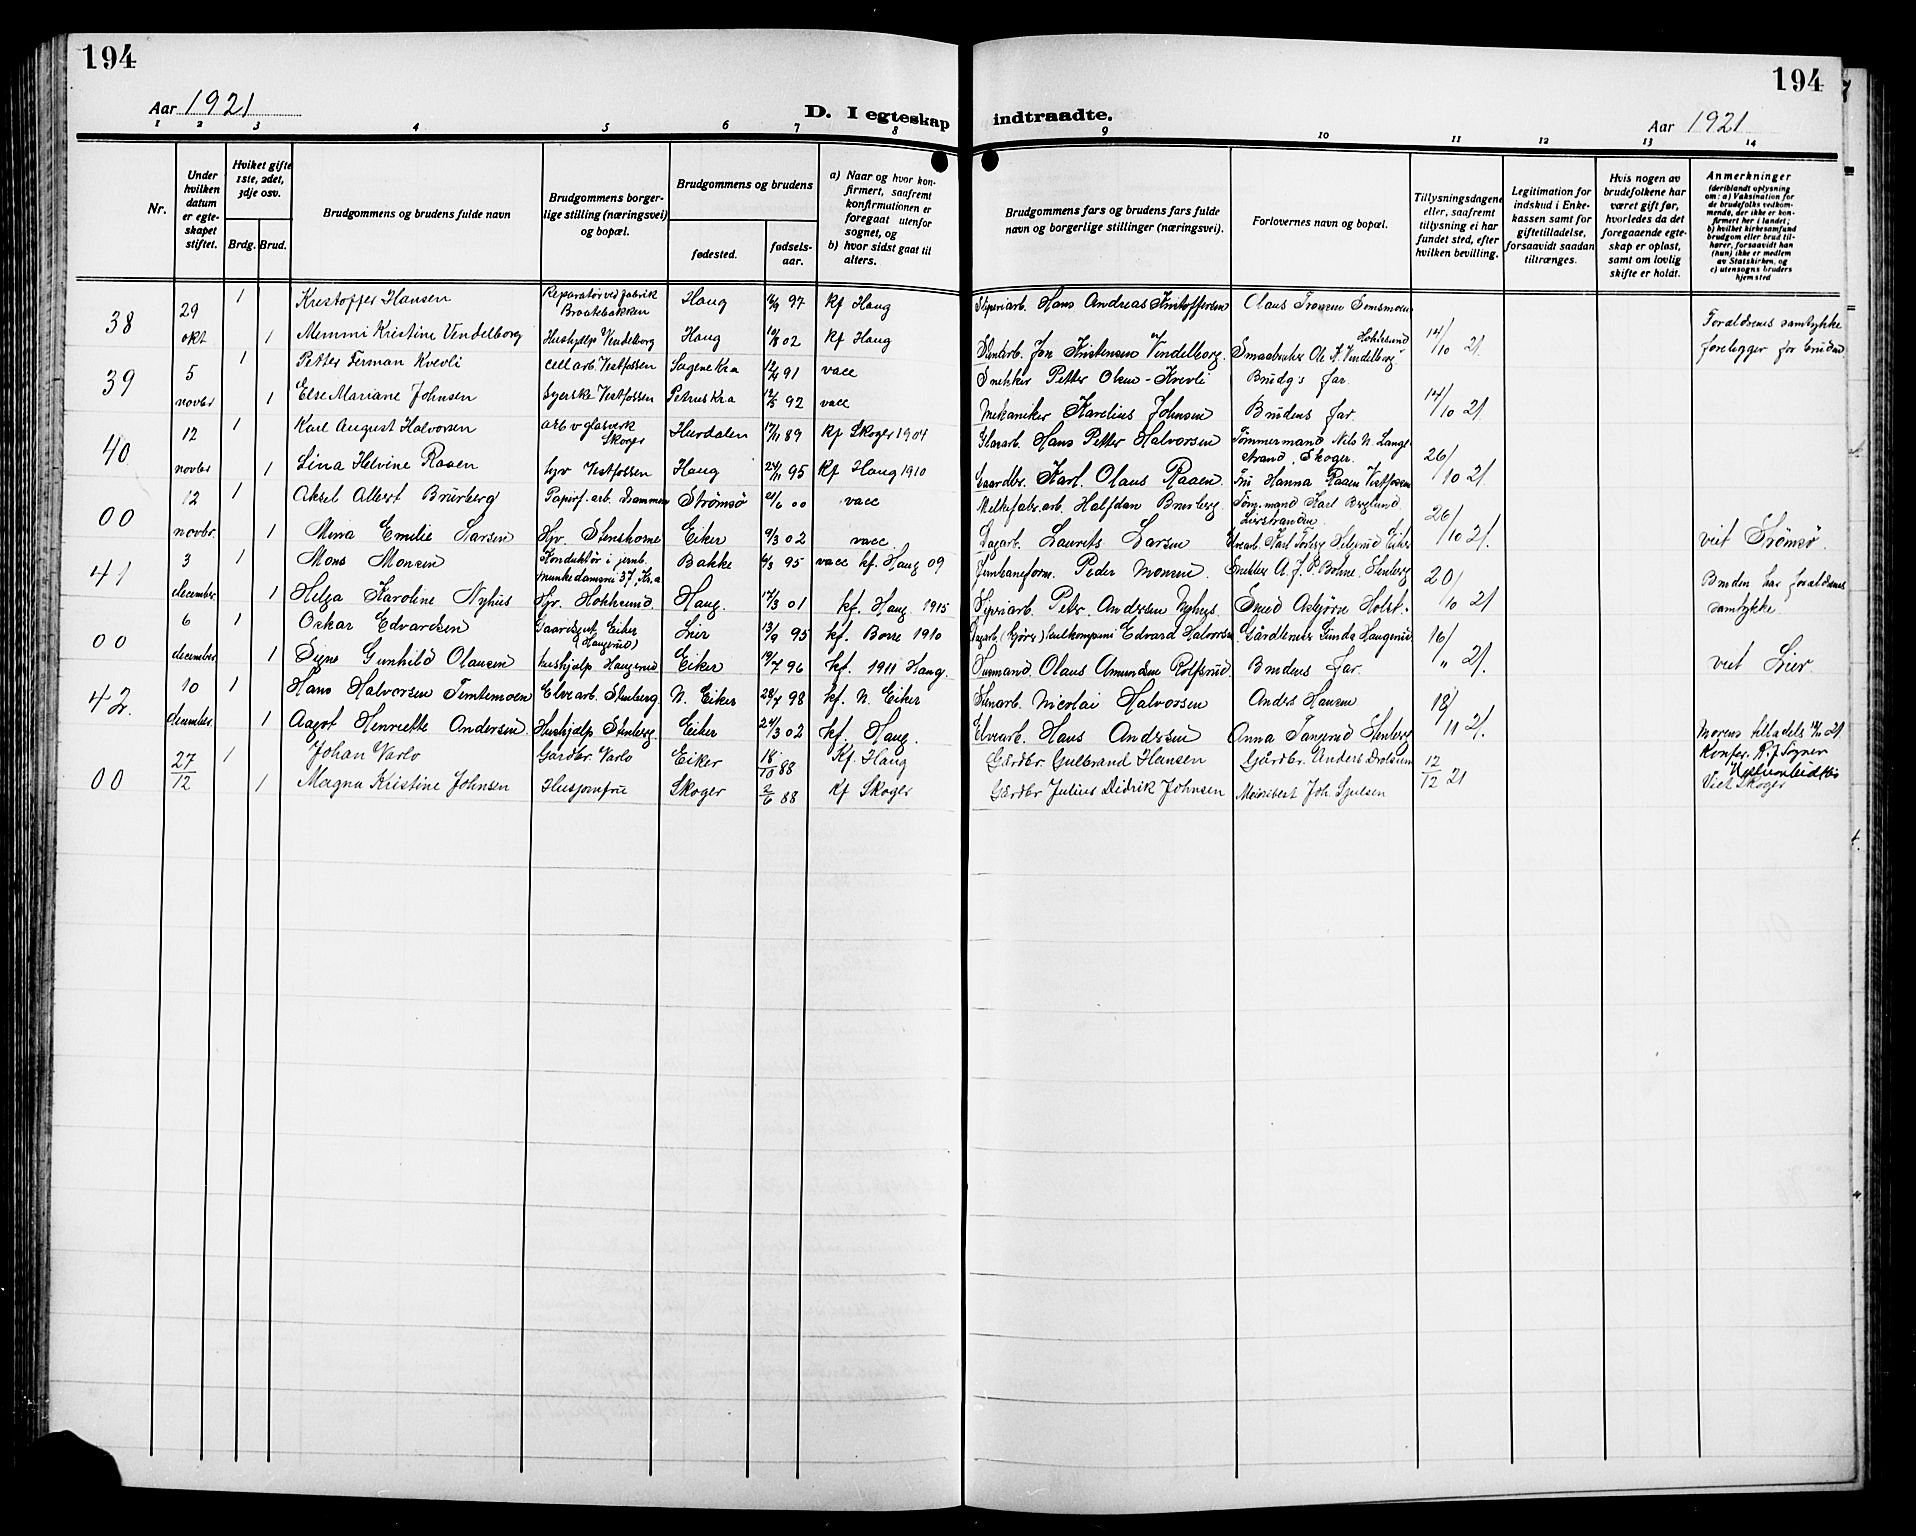 194
Aar 1921
D. I egteskap
1 2 3 4 5 6 7 8
Nr.
Under hvilken datum er egteskapet stiftet.
Hviket gifte 1ste, 2det, 3dje osv.
Brdg. Brud.
Brudgommens og brudens fulde navn
Brudgommens borgerlige stilling (næringsvei) og bopæl.
Brudgommens og brudens
fødested.
fødselsaar.
a) Naar og hvor konfirmert, saafremt konfirmationen er foregaat utenfor sognet, og
b) hvor sidst gaat til alters.
38 29 1 Kristoffer Hansen Reparatør ved fabrik Braatebakken Haug 97 kf Haug
okt 1 Memmi Kristine Vendelborg Hushjelp Vendelborg Haug 02 kf Haug
39 5 1 Petter Ferman Krevli cell arb. Vestfossen Sagene Kra 91 vacc
novbr 1 Else Mariane Johnsen Syerske Vestfossen Petrus Kra 12/5 92 vacc
40 12 1 Karl August Halvorsen arb v glasverk Skoger Hurdalen 17/11 89 kf Skoger 1904
novbr 1 Lina Helvine Raaen hjv Vestfossen Haug 24/11 95 kf Haug 1910
00 12 1 Aksel Albert Brurberg Papirf. arb. Drammen Strømsø 21/6 00 vacc
novbr. 1 Mina Emilie Larsen Hjv. Stenshorne Eiker 9/3 02 vacc
41 3 1 Mons Monsen Konduktør i jernb. Munkedamsvei 37, Kr.a Bakke 95 vacc kf. Haug 09
december 1 Helga Karoline Nyhus Hjv. Hokksund Haug. 17/3 01 kf. Haug 1915
00 6 1 Oskar Edvardsen Gaardsgut Eiker (Haugerud) Lier 13/9 95 kf. Borre 1910
december 1 Signe Gunhild Olausen hushjælp Haugerud Eiker 19/7 96 kf. 1911 Haug.
42. 10 1 Hans Halvorsen Temtemoen Elvearb. Stenberg N. Eiker 28/7 98 kf. N. Eiker
december 1 Aagot Henriette Andersen Hushjælp Stenberg. Eiker 24/3 02 kf. Haug.
00 27/12 1 Johan Varlo Gårdbr. Varlo Eiker 18/10 88 Kf. Haug
1 Magna Kristine Johnsen Husjomfru Skoger 2/6 88 Kf Skoger
194
indtraadte.
Aar 1921
9 10 11 12 13 14
Brudgommens fars og brudens fars fulde navn og borgerlige stillinger (næringsvei).
Forlovernes navn og bopæl.
Tillysningsdagene eller, saafremt tillysning ei har fundet sted, efter hvilken bevilling.
Legitimation for indskud i Enkekassen samt for giftetilladelse, forsaavidt saadan tiltrænges.
Hvis nogen av brudefolkene har været gift før, hvorledes da det foregaaende egteskap er opløst, samt om lovlig skifte er holdt.
Anmerkninger
(deriblandt oplysning om: a) Vaksination for de brudefolks vedkommende, der ikke er konfirmert her i landet; b) hvilket kirkesamfund brudgom eller brud tilhører, forsaavidt han (hun) ikke er medlem av Statskirken, og c) utensogns bruders hjemsted
Hans Andreas Kristoffersen Olaus Tronsen Semsmoen Hokksund
Stenarb. Jon Kristensen Vendelborg. Smaabruker Ole K. Vendelborg 14/10 21. Forældrenes samtykke foreligger for bruden
Snekker Petter Olsen-Krevli Brudg's far.
Mekaniker Karelius Johnsen Brudens far. 14/10 21.
Glasarb. Hans Petter Halvorsen Tømmermand Nils N. Langestrand, Skoger.
Gaardbr. Karl Olaus Raaen. Fru Hanna Raaen Vestfossen 26/10 21.
Melkefabr.arb. Halfdan Brurberg. Tøm.mand Karl Berglund Lierstranden
Dagarb. Laurits Larsen Eiker 26/10 21. viet Strømsø.
Jernbaneform. Peder Monsen. Snekker A. J. P. Bohne. Stenberg
Petr. Andersen Nyhus. Smed Asbjørn Holst. 20/10 21 Bruden har forældrenes samtykke.
Edvard Halvorsen. Gårdbruker Gunda Haugerud
Olaus Amundsen Rolfsrud Brudens far. 16/„ 21. viet Lier.
Stenarb. Nicolai Halvorsen Anders Hansen
Elvearb. Hans Andersen Anna Tangerud Stenberg 18/11 21. Morens tilladelse
Gårdbr. Gulbrand Hansen Gårdbr. Anders Dolsum
Gårdbr Julius Didrik Johnsen Joh. 12/12 21 Viet Skoger